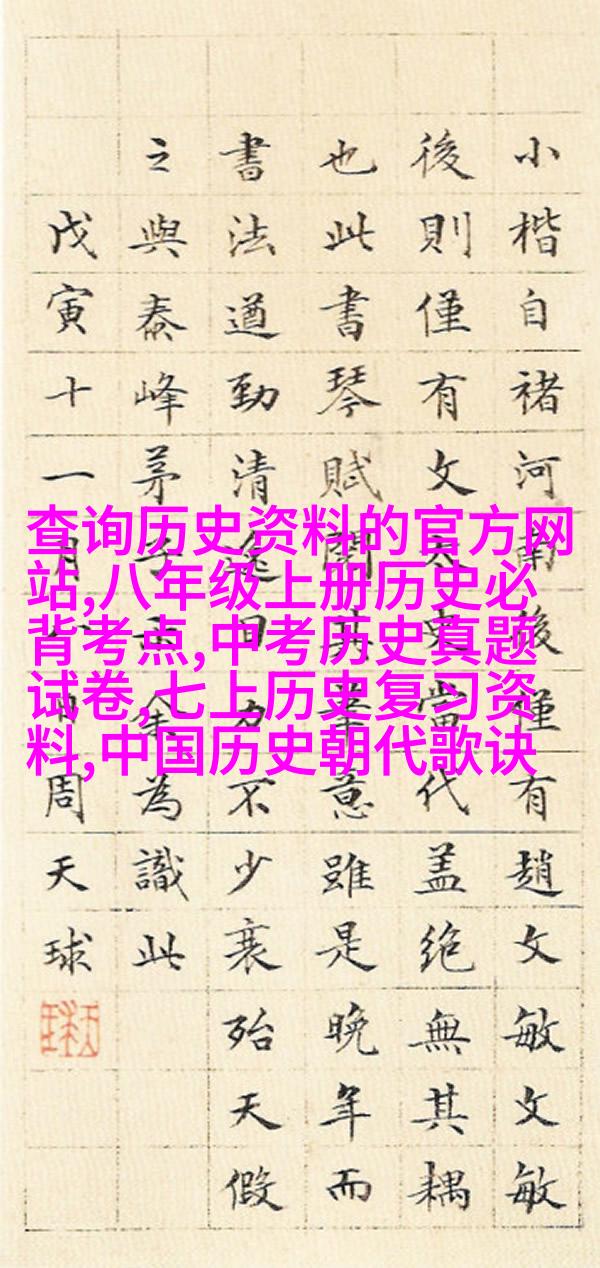 小楷自褚河南後僅有趙文敏文敏
後則僅有文太史當代盖絶無其耦
也此書琴賦其筆意雖是晚年而
書法遒勁清逸目力不少衰殆天假
之與泰峰茅子余為識此
戊寅十一月日周天球
查询历史资料的官方网
站,八年级上册历史必
背考点,中考历史真题
试卷,七上历史复习资
料,中国历史朝代歌诀